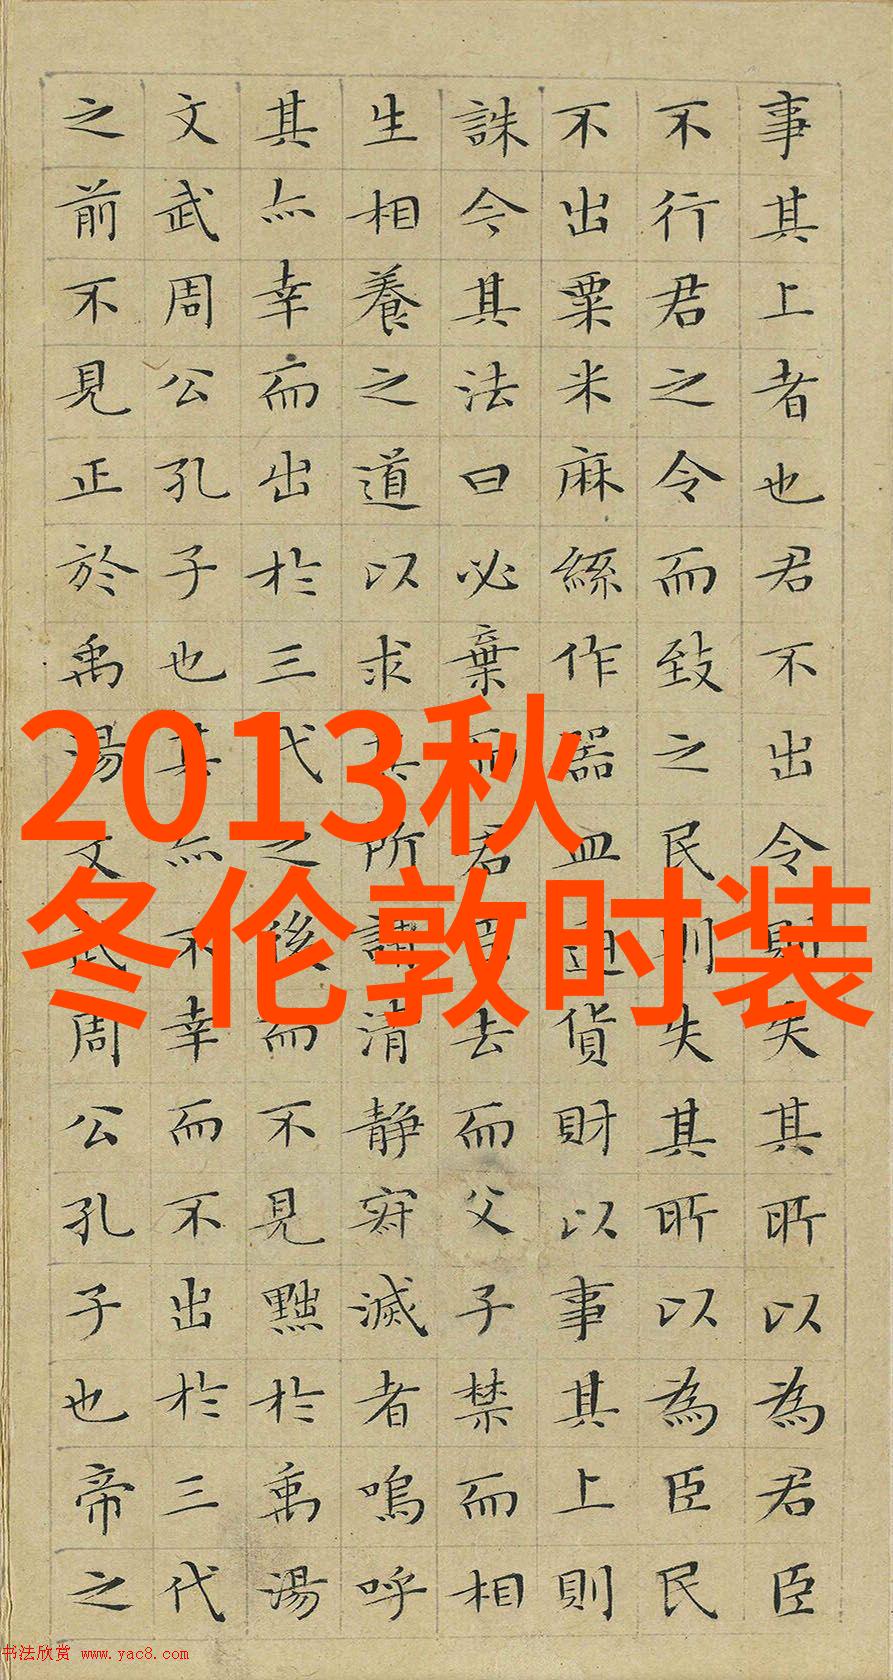 事其上者也君不出令則失其所以為君臣
不行君之令而致之民則失其所以為臣民
不出粟米麻絲作器皿通貨財以事其上則
誅今其法曰必棄而君臣去而父子禁而相
生相養之道以求其所謂清静寂滅者嗚呼
其亦幸而出於三代之後而不見黜於禹湯
文武周公孔子也其亦不幸而不出於三代
之前不見正於禹湯文武周公孔子也帝之
2013秋
冬伦敦时装
书法欣赏 www.yac8.com